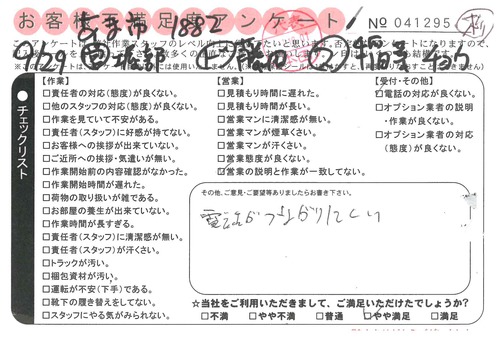 お客様満足度アンケート
あま市 1882
No 041295
9/29
チェックリスト
【作業】
□責任者の対応(態度)が良くない。
□他のスタッフの対応(態度)が良くない。
□作業を見ていて不安がある。
□責任者(スタッフ)に好感が持てない。
□お客様への挨拶が出来ていない。
□ご近所への挨拶・気遣いが無い。
□作業開始前の内容確認がなかった。
□作業開始時間が遅れた。
□荷物の取り扱いが雑である。
□お部屋の養生が出来ていない。
□作業時間が長すぎる。
□責任者(スタッフ)に清潔感が無い。
□責任者(スタッフ)が汗くさい。
□トラックが汚い。
□梱包資材が汚い。
□運転が不安(下手)である。
□靴下の履き替えをしてない。
□スタッフにやる気がみられない。
【営業】
□見積もり時間に遅れた。
□見積もり時間が長い。
□営業マンに清潔感が無い。
□営業マンが煙草くさい。
□営業マンが汗くさい。
□営業態度が良くない。
□営業の説明と作業が一致してない。
【受付・その他】
□電話の対応が良くない。
□オプション業者の説明
・作業が良くない。
□オプション業者の対応
(態度)が良くない。
その他、ご意見・ご要望等ありましたらお書き下さい。
電話がつながりにくい
☆当社をご利用いただきまして、ご満足いただけたでしょうか?
□不満 □やや不満 □普通 □やや満足 □満足